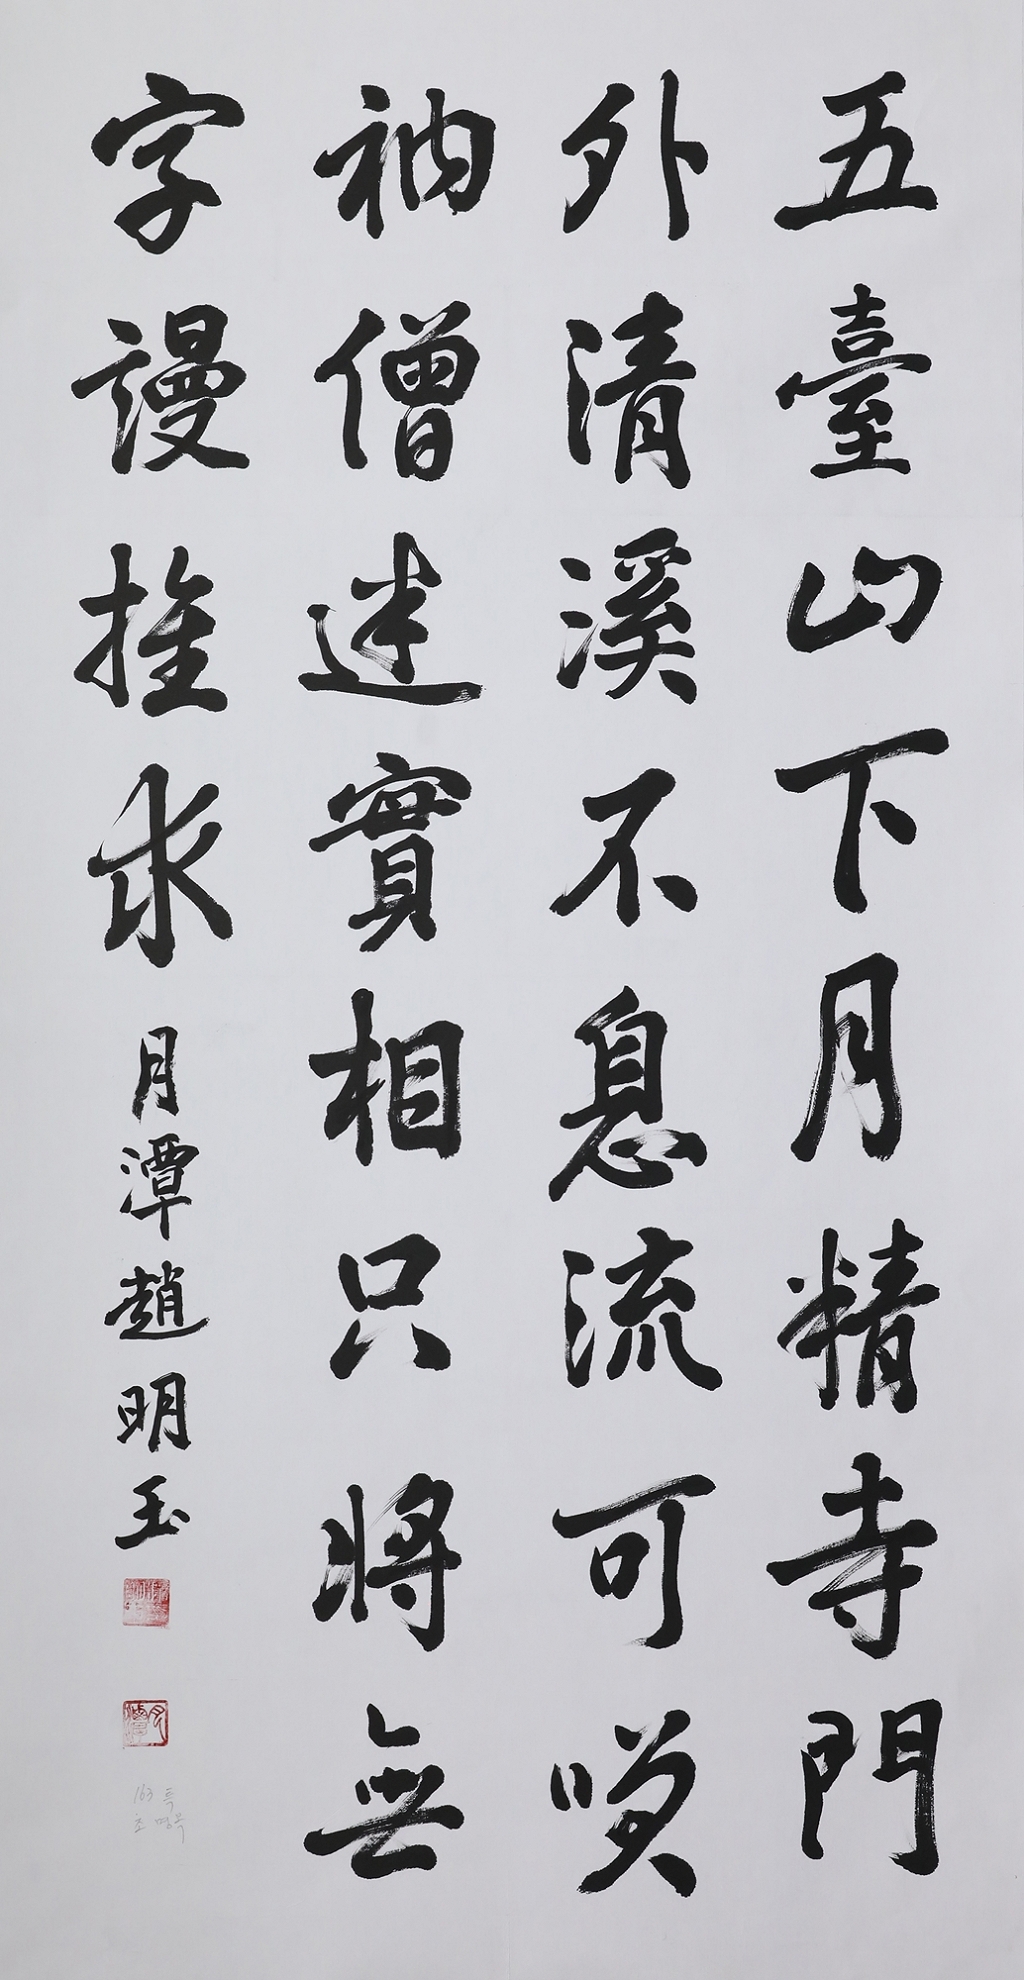 五臺山下月精寺門
外清溪不息流可嘆
衲僧迷實相只將無
字謾推求
月潭趙明玉
163 특
조명옥